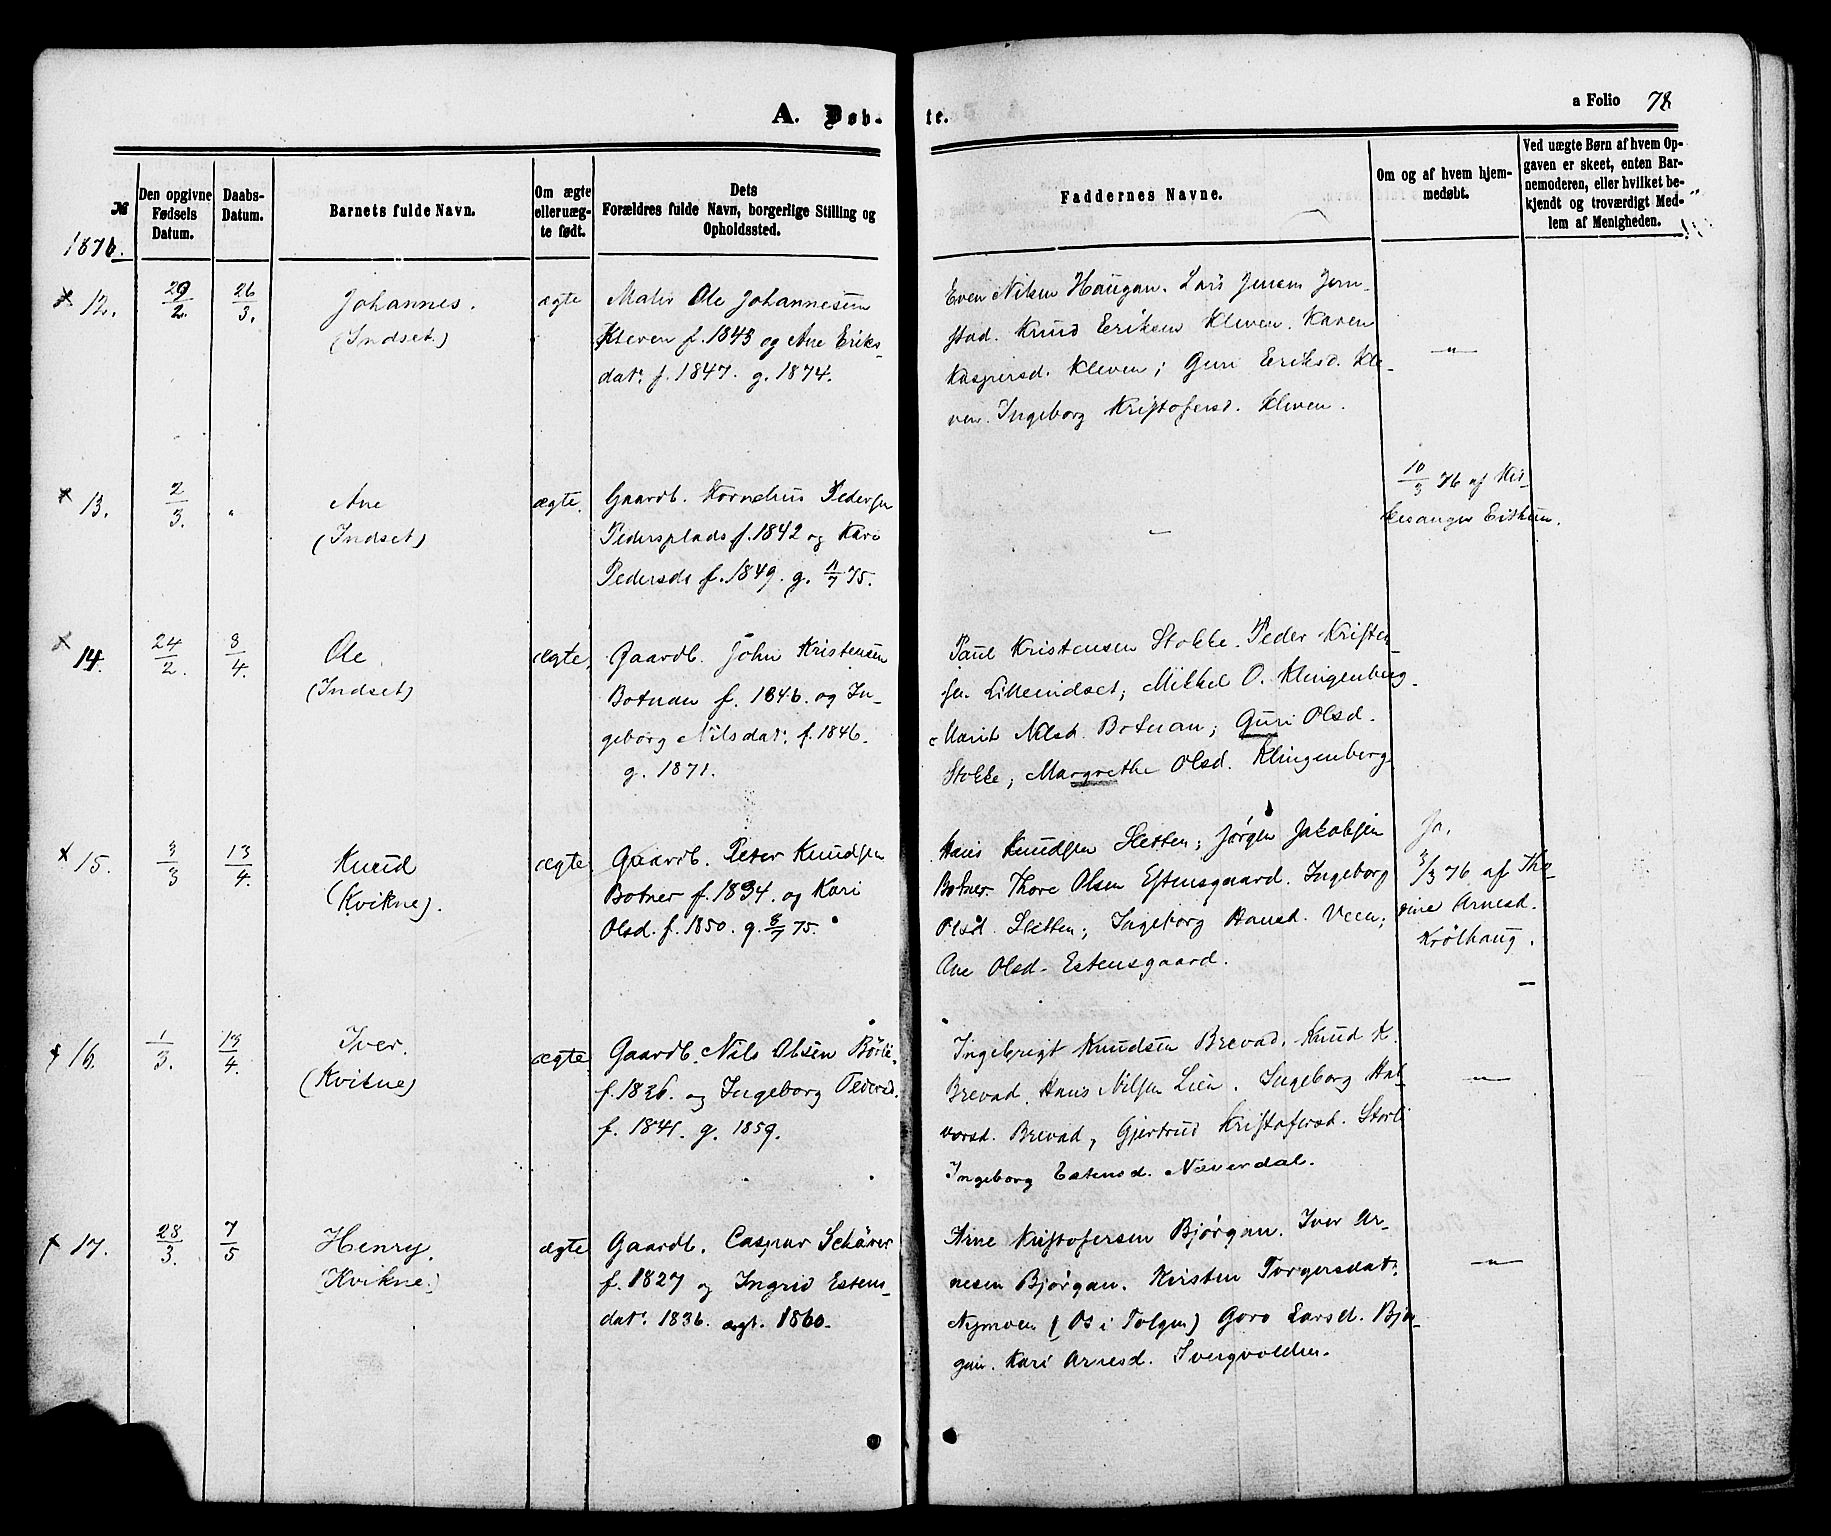 A. Døb-
te.
a Folio 78
№
Den opgivne
Fødsels
Datum.
Daabs-
Datum.
Barnets fulde Navn.
Om ægte
elleruæg-
te født.
Dets
Forældres fulde Navn, borgerlige Stilling og
Opholdssted.
Faddernes Navne.
Om og af hvem hjem-
medøbt.
Ved uægte Børn af hvem Op-
gaven er skeet, enten Bar-
nemoderen, eller hvilket be-
kjendt og troværdigt Med-
lem af Menigheden.
1876.
12.
29/2
26/3.
Johannes.
(Indset.)
ægte
Maler Ole Johannesen
Kleven f. 1843 og Ane Eriks-
dat. f. 1847. g. 1874.
Even Nilsen Haugan. Lars Jensen Jern-
stad. Knud Eriksen Kleven. Karen
Kaspersd. Kleven; Guri Eriksd. Kle-
ven. Ingeborg Kristofersd. Kleven.
–"–
13.
2/3.
"
Ane
(Indset)
ægte.
Gaardb. Kornelius Pedersen
Pedersplads f. 1842 og Kari
Pedersd. f. 1849. g. 11/7 75.
–
10/3 76 af Kir-
kesanger Eithun.
14.
24/2.
3/4.
Ole
(Indset)
ægte.
Gaardb. John Kristensen
Botnan f. 1846. og In-
geborg Nilsdat. f. 1846.
g. 1871.
Paul Kristensen Stokke. Peder Kristen-
sen Lilleindset; Mikkel O. Klingenberg.
Marit Nilsd. Botnan; Guri Olsd.
Stokke; Margrethe Olsd. Klingenberg
15.
3/3
13/4.
Knud
(Kvikne).
ægte
Gaardb. Peter Knudsen
Botner f. 1834. og Kari
Olsd. f. 1850. g. 8/7 75.
Hans Knudsen Sletten; Jørgen Jakobsen
Botner. Thore Olsen Estensgaard. Ingeborg
Olsd. Sletten; Ingeborg Hansd. Veen;
Ane Olsd. Estensgaard.
Ja.
3/3 76 af Tho-
rine Arnesd.
Krölhaug.
–
16.
1/3.
13/4.
Iver.
(Kvikne)
ægte
Gaardb. Nils Olsen Börli
f. 1836. og Ingeborg Pedersd.
f. 1841. g. 1859.
Ingebrigt Knudsen Brevad. Knud K.
Brevad. Hans Nilsen Lien. Ingeborg Hal-
vorsd. Brevad; Gjertrud Kristofersd. Storli
Ingeborg Estensd. Næverdal.
–"–
17.
28/3.
7/5
Henry.
(Kvikne.)
ægte
Gaardb. Caspar Schärer
f. 1827 og Ingrid Estens-
dat. 1836. ægt. 1860.
Arne Kristofersen Bjørgan. Iver Ar-
nesen Bjørgan. Kirsten Torgersdat.
Nymoen (Os i Tolgen) Goro Larsd. Bjør-
gan. Kari Arnesd. Ivergvolden.
–"–